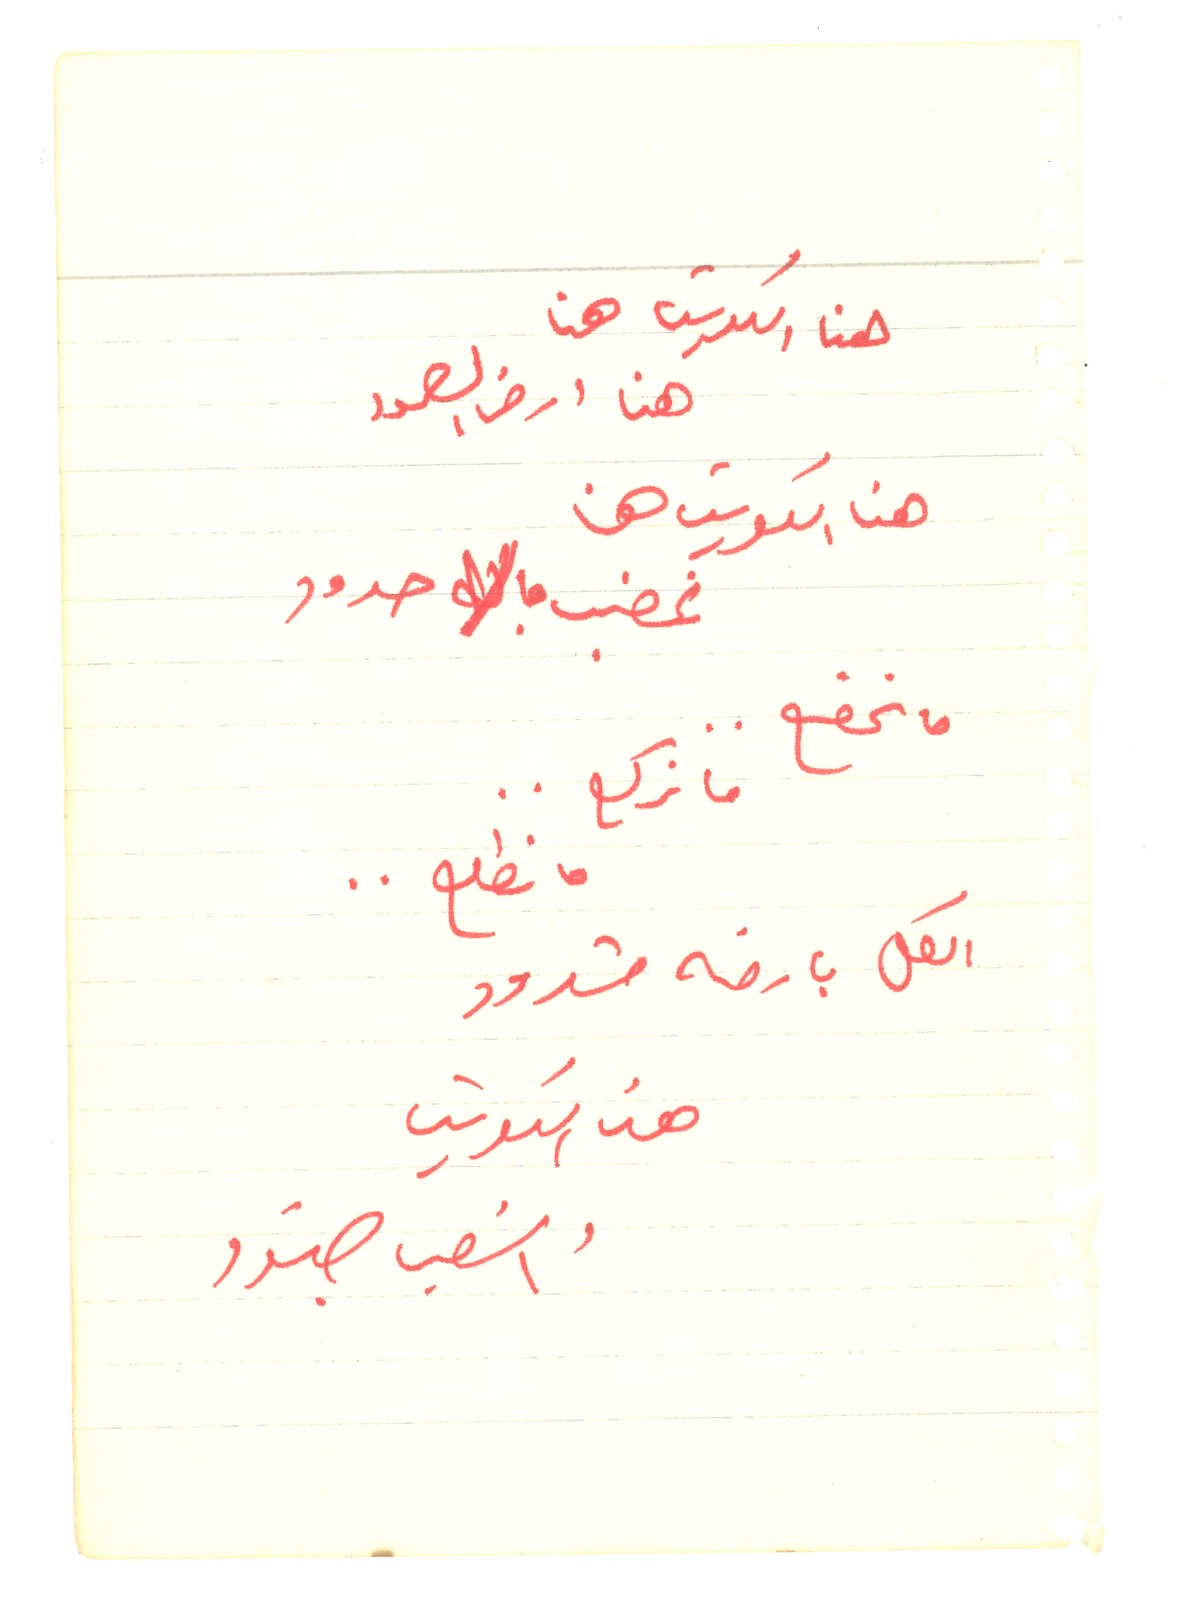 هنا الكويت هنا
هنا ارض الصمود
هنا الكويت هنا
نغضب ماله حدود
ما نخضع ..
ما نركع ..
ما نطلع ..
الكل بارضه مشدود
هنا الكويت
و الشعب جنود